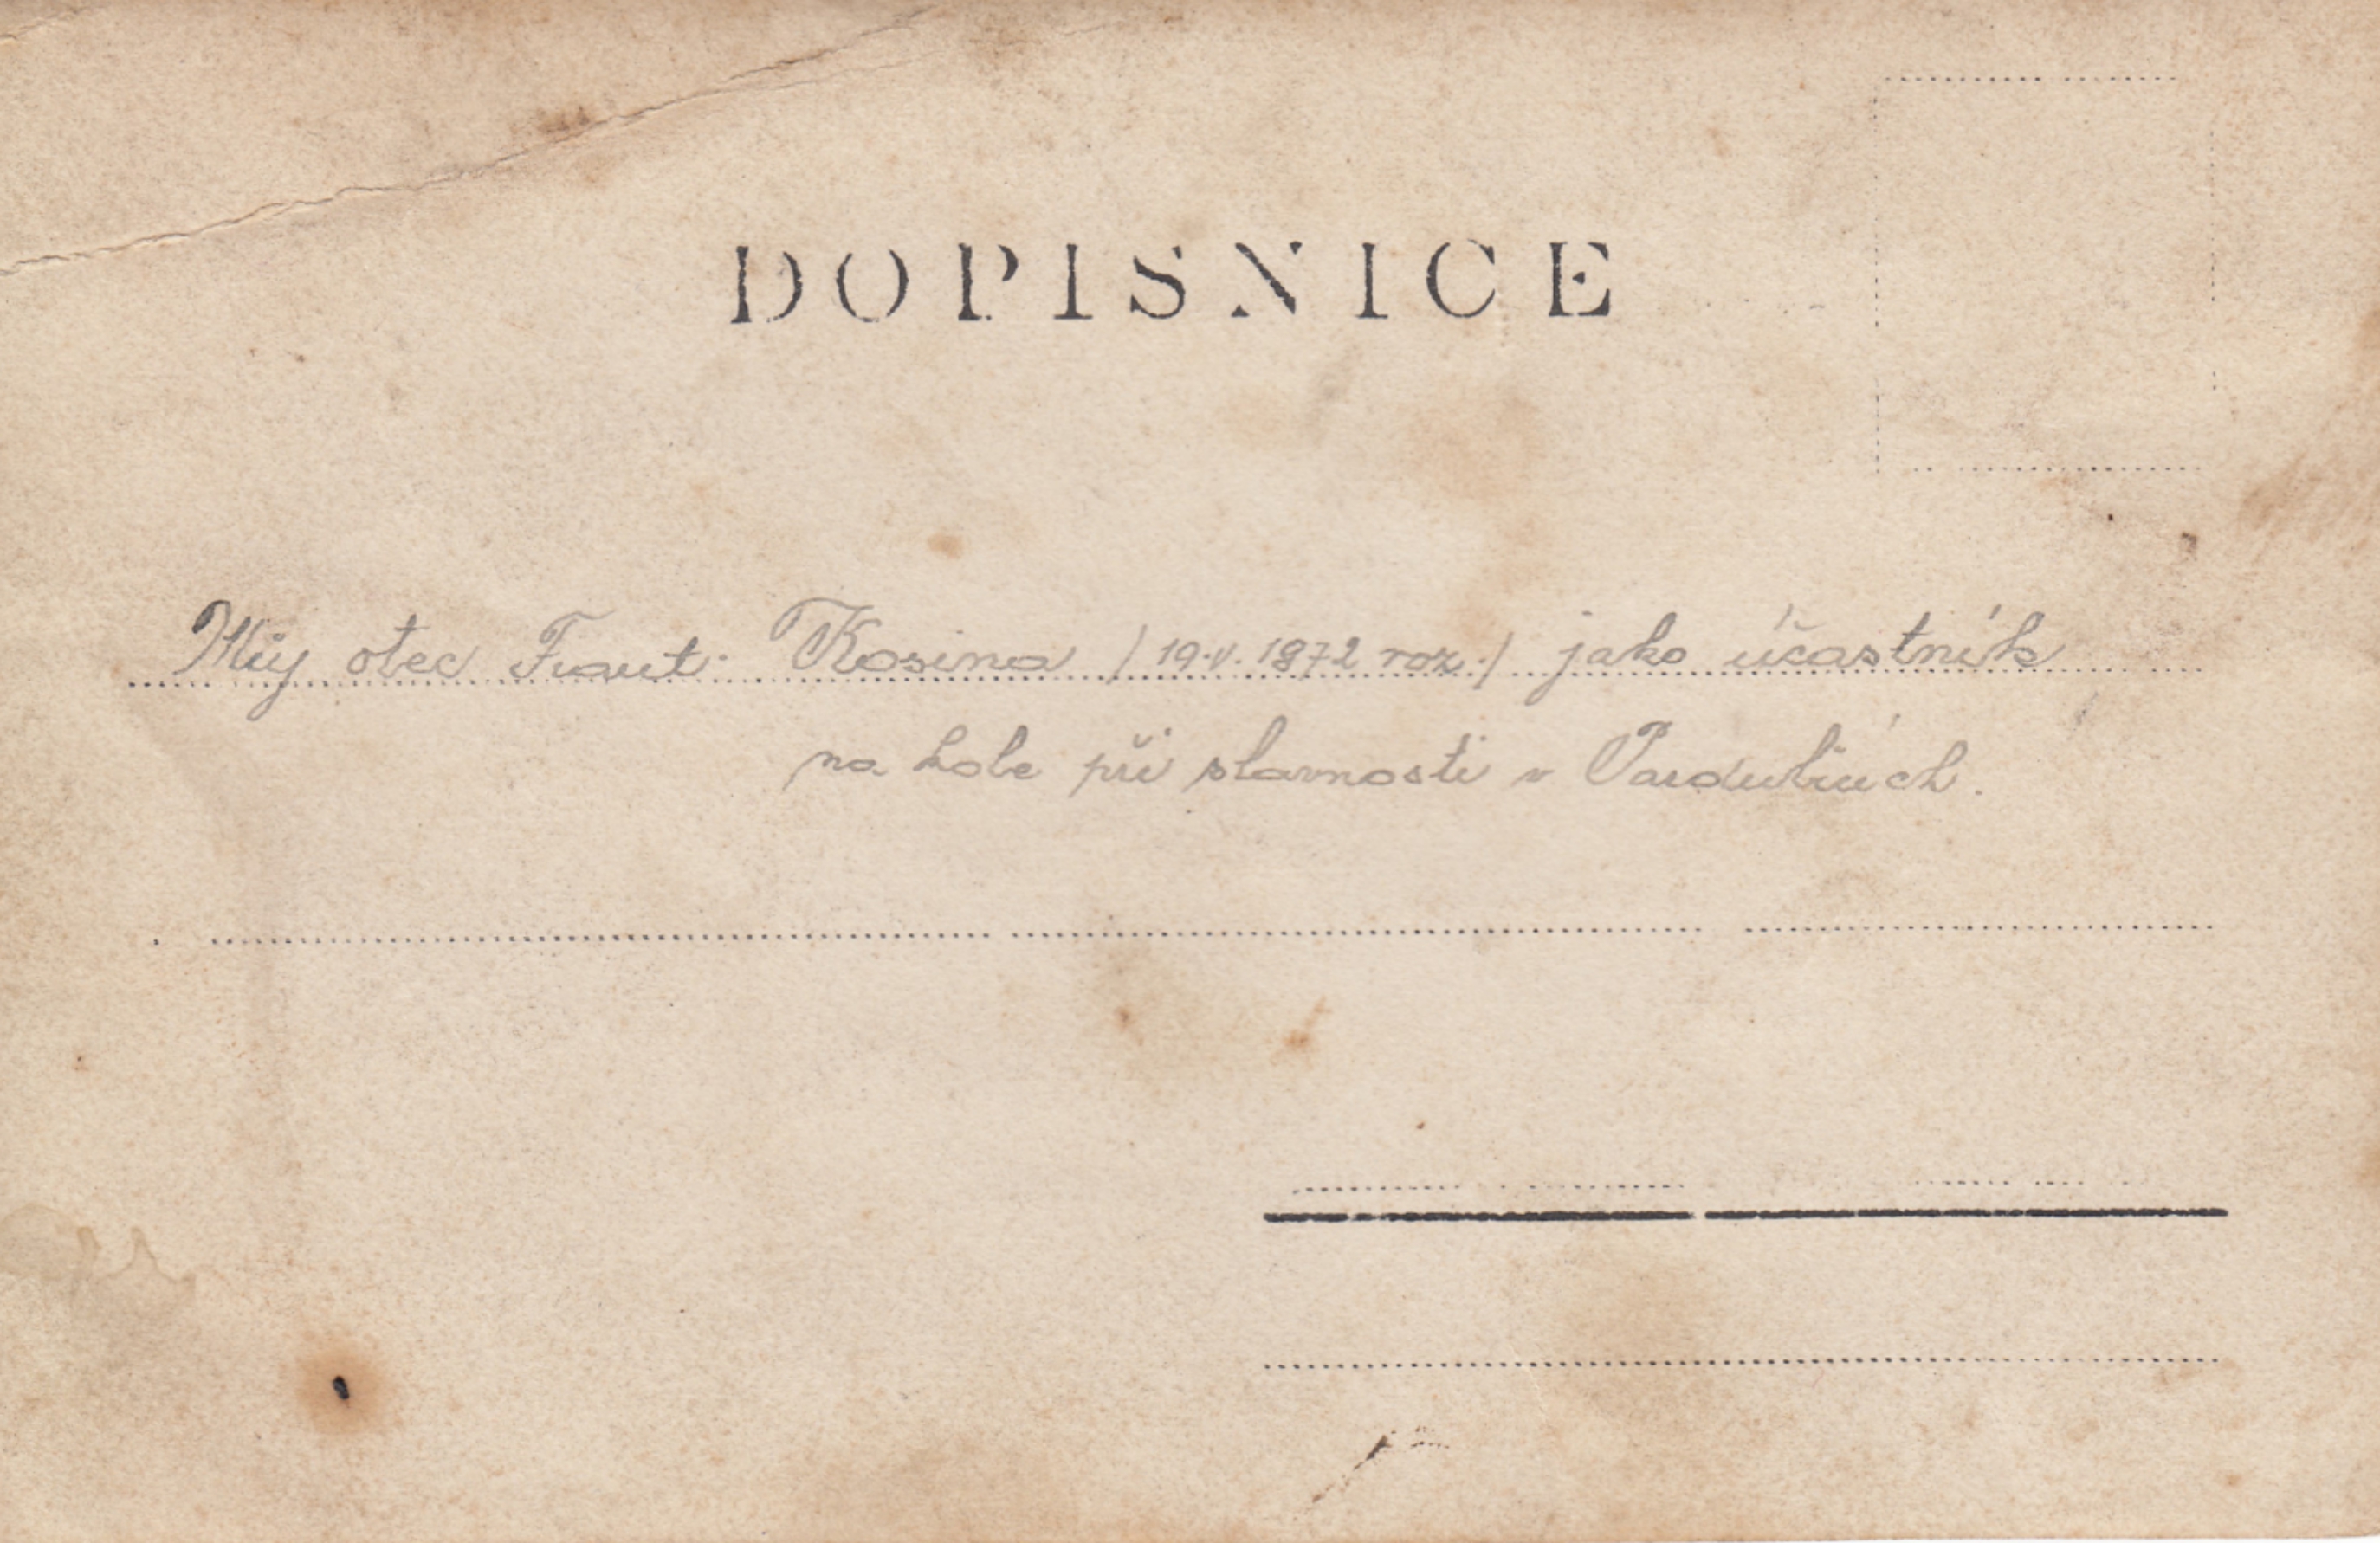 DOPISNICE
Můj otec Frant. Kosina /19.V.1872 roz./ jako účastník
na kole při slavnosti v Pardubicích.